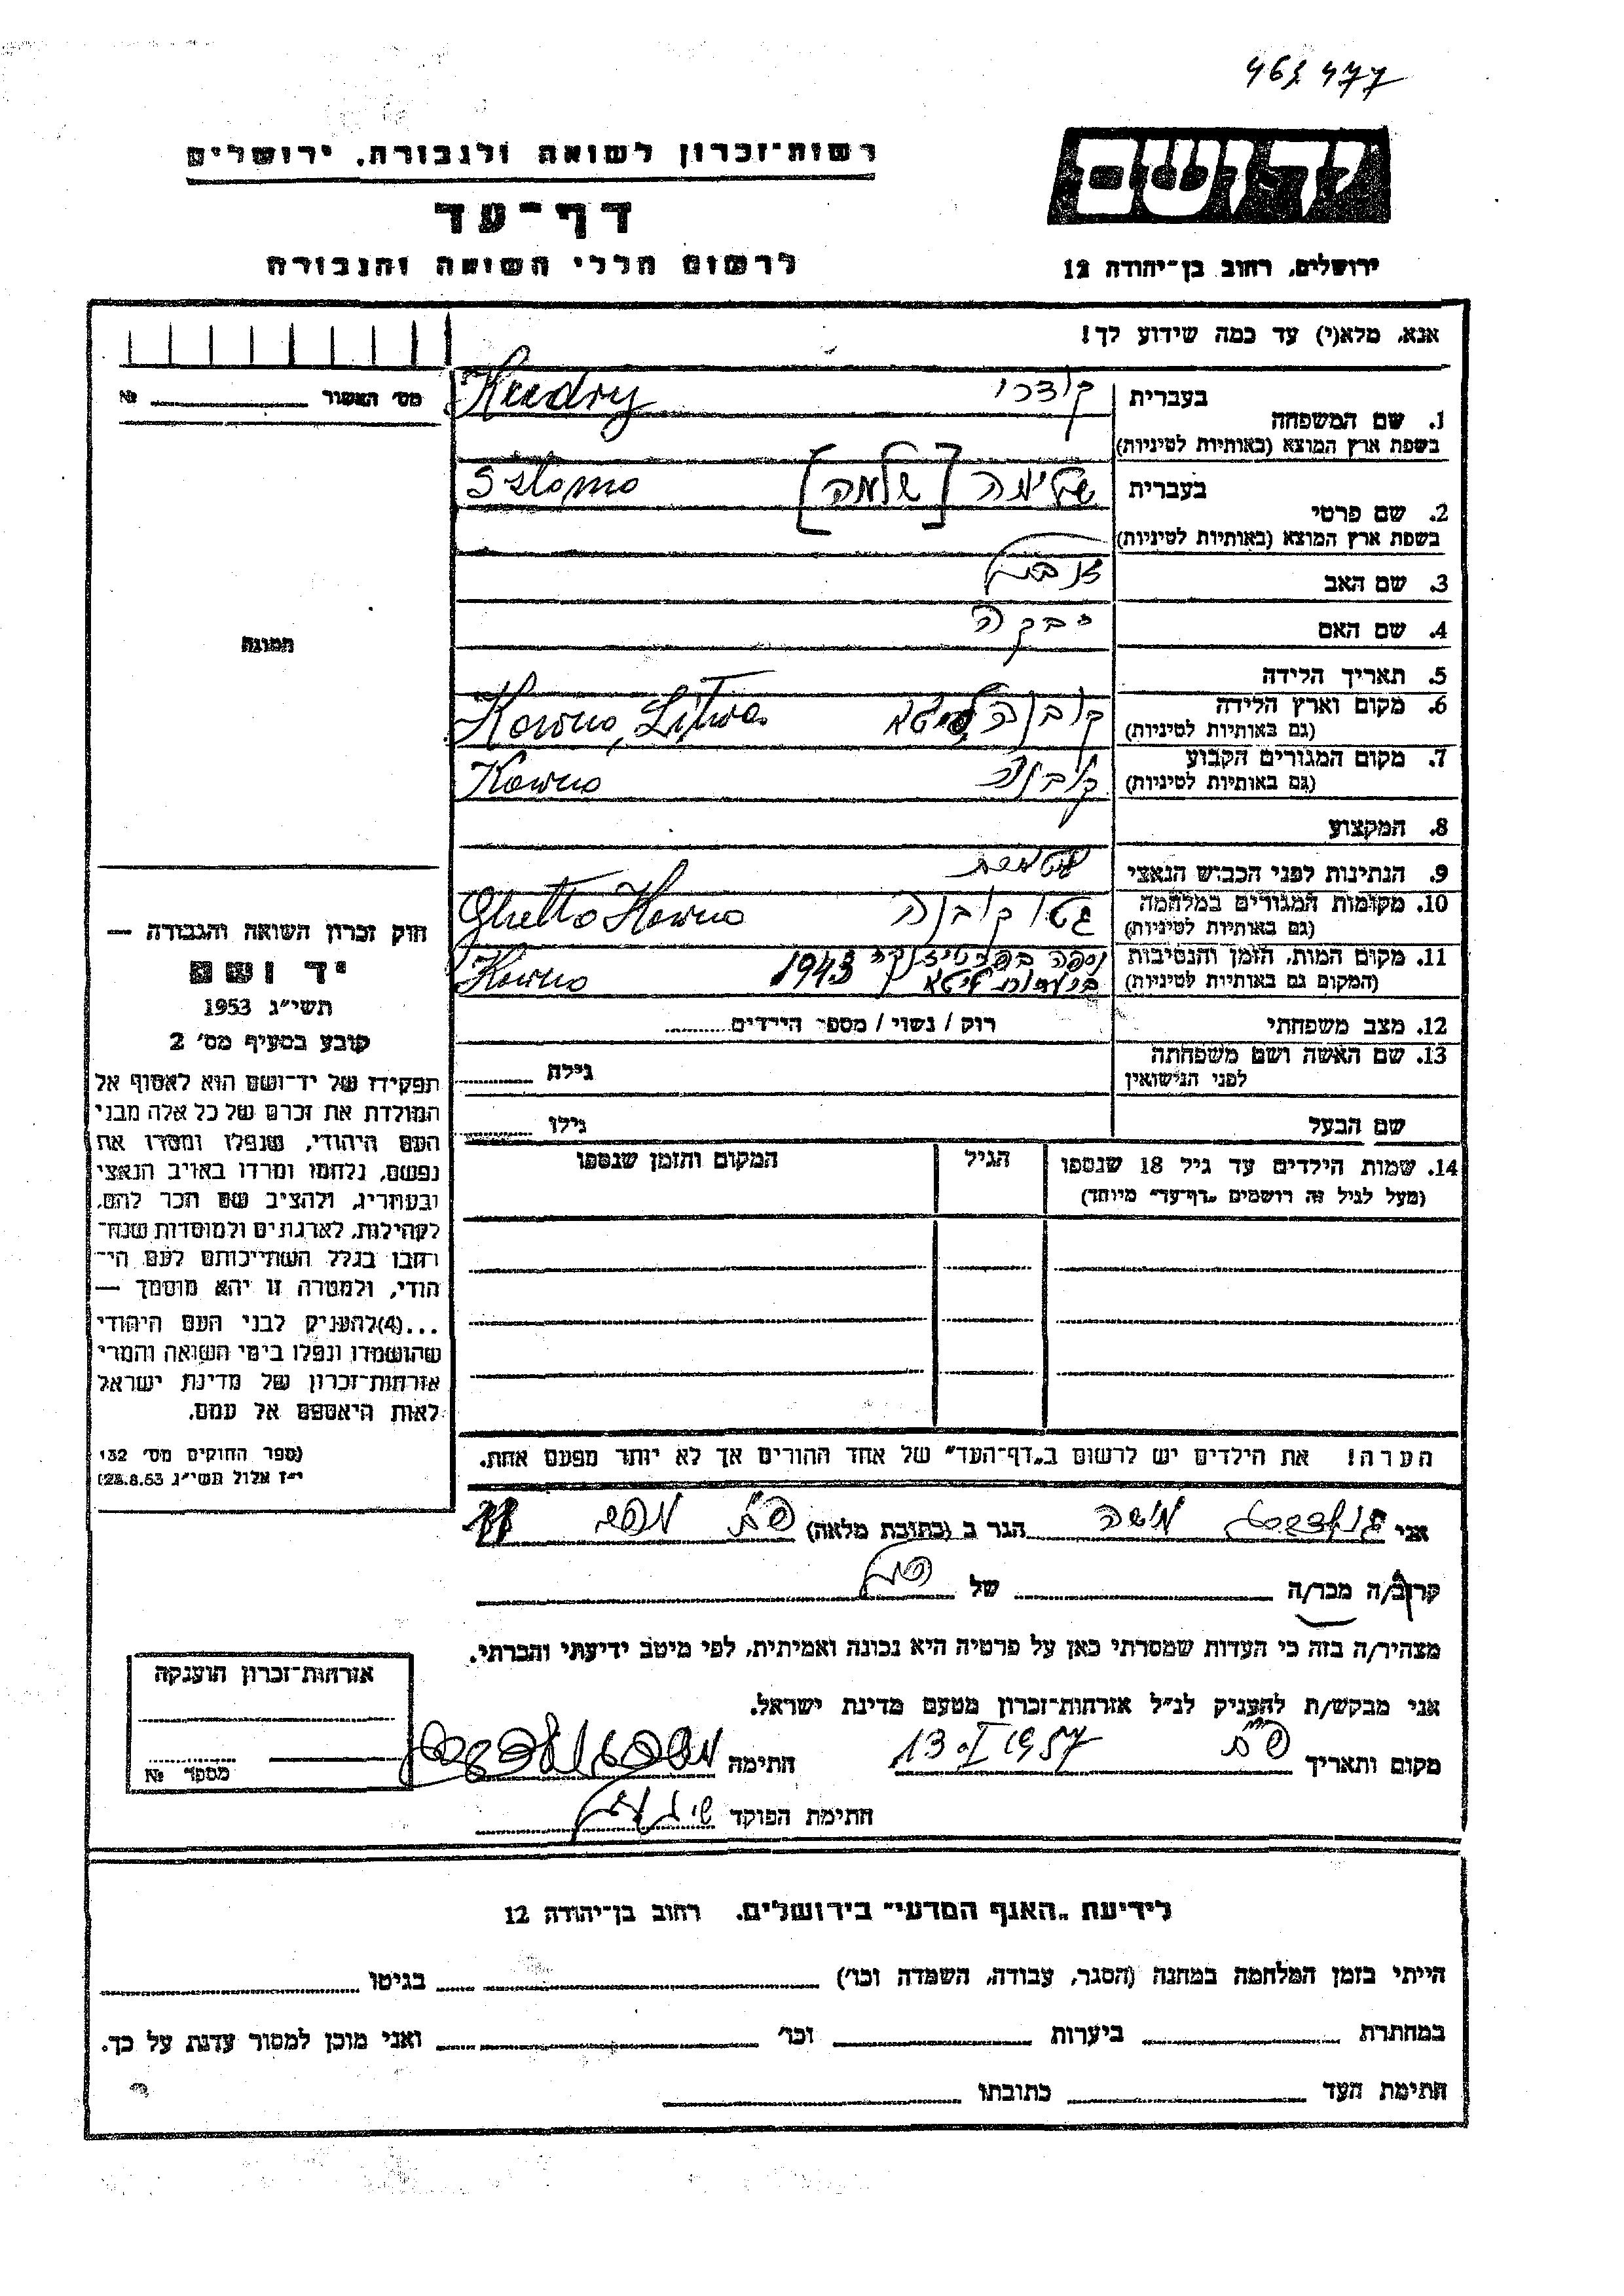 רשות־זכרון לשואה ולגבורה, ירושלים
דף־עד
לרשום חללי השואה והגבורה
יד ושם
ירושלים, רחוב בן־יהודה 12
אנא, מלא(י) עד כמה שידוע לך!
מס׳ האשור № 
1. שם המשפחה
בעברית קודרי
בשפת ארץ המוצא (באותיות לטיניות) Kudry
2. שם פרטי
בעברית [שלמה]
בשפת ארץ המוצא (באותיות לטיניות) Szlomo
3. שם האב
4. שם האם רבקה
5. תאריך הלידה
6. מקום וארץ הלידה קובנה ליטא
(גם באותיות לטיניות) Kowno, Litwa
7. מקום המגורים הקבוע קובנה
(גם באותיות לטיניות) Kowno
8. המקצוע
9. הנתינות לפני הכבוש הנאצי
10. מקומות המגורים במלחמה גטו קובנה
(גם באותיות לטיניות) Ghetto Kowno
11. מקום המות, הזמן והנסיבות נספה 1943
(המקום גם באותיות לטיניות) ליטא Kowno
12. מצב משפחתי רוק / נשוי / מספר הילדים
13. שם האשה ושם משפחתה
לפני הנישואין גילה
שם הבעל גילו
14. שמות הילדים עד גיל 18 שנספו הגיל המקום והזמן שנספו
(מעל לגיל זה רושמים „דף־עד״ מיוחד)
הערה! את הילדים יש לרשום ב„דף־העד״ של אחד ההורים אך לא יותר מפעם אחת.
תמונה
חוק זכרון השואה והגבורה —
יד ושם
תשי״ג 1953
קובע בסעיף מס׳ 2
תפקידו של יד־ושם הוא לאסוף אל
המולדת את זכרם של כל אלה מבני
העם היהודי, שנפלו ומסרו את
נפשם, נלחמו ומרדו באויב הנאצי
ובעוזריו, ולהציב שם וזכר להם,
לקהילות, לארגונים ולמוסדות שנח־
רבו בגלל השתייכותם לעם הי־
הודי, ולמטרה זו יהא מוסמך —
...(4)להעניק לבני העם היהודי
שהושמדו ונפלו בימי השואה והמרי
אזרחות־זכרון של מדינת ישראל
לאות היאספם אל עמם.
(ספר החוקים מס׳ 132
י״ז אלול תשי״ג 28.8.53)
אני משה הגר ב (כתובת מלאה)
קרוב/ה מכר/ה של
מצהיר/ה בזה כי העדות שמסרתי כאן על פרטיה היא נכונה ואמיתית, לפי מיטב ידיעתי והכרתי.
אני מבקש/ת להעניק לנ״ל אזרחות־זכרון מטעם מדינת ישראל.
מקום ותאריך 13.I 1957 חתימה
חתימת הפוקד
אזרחות־זכרון הוענקה
מספר №
לידיעת „האגף המדעי״ בירושלים, רחוב בן־יהודה 12
הייתי בזמן המלחמה במחנה (הסגר, עבודה, השמדה וכו׳) בגיטו
במחתרת ביערות וכו׳ ואני מוכן למסור עדות על כך.
חתימת העד כתובתו